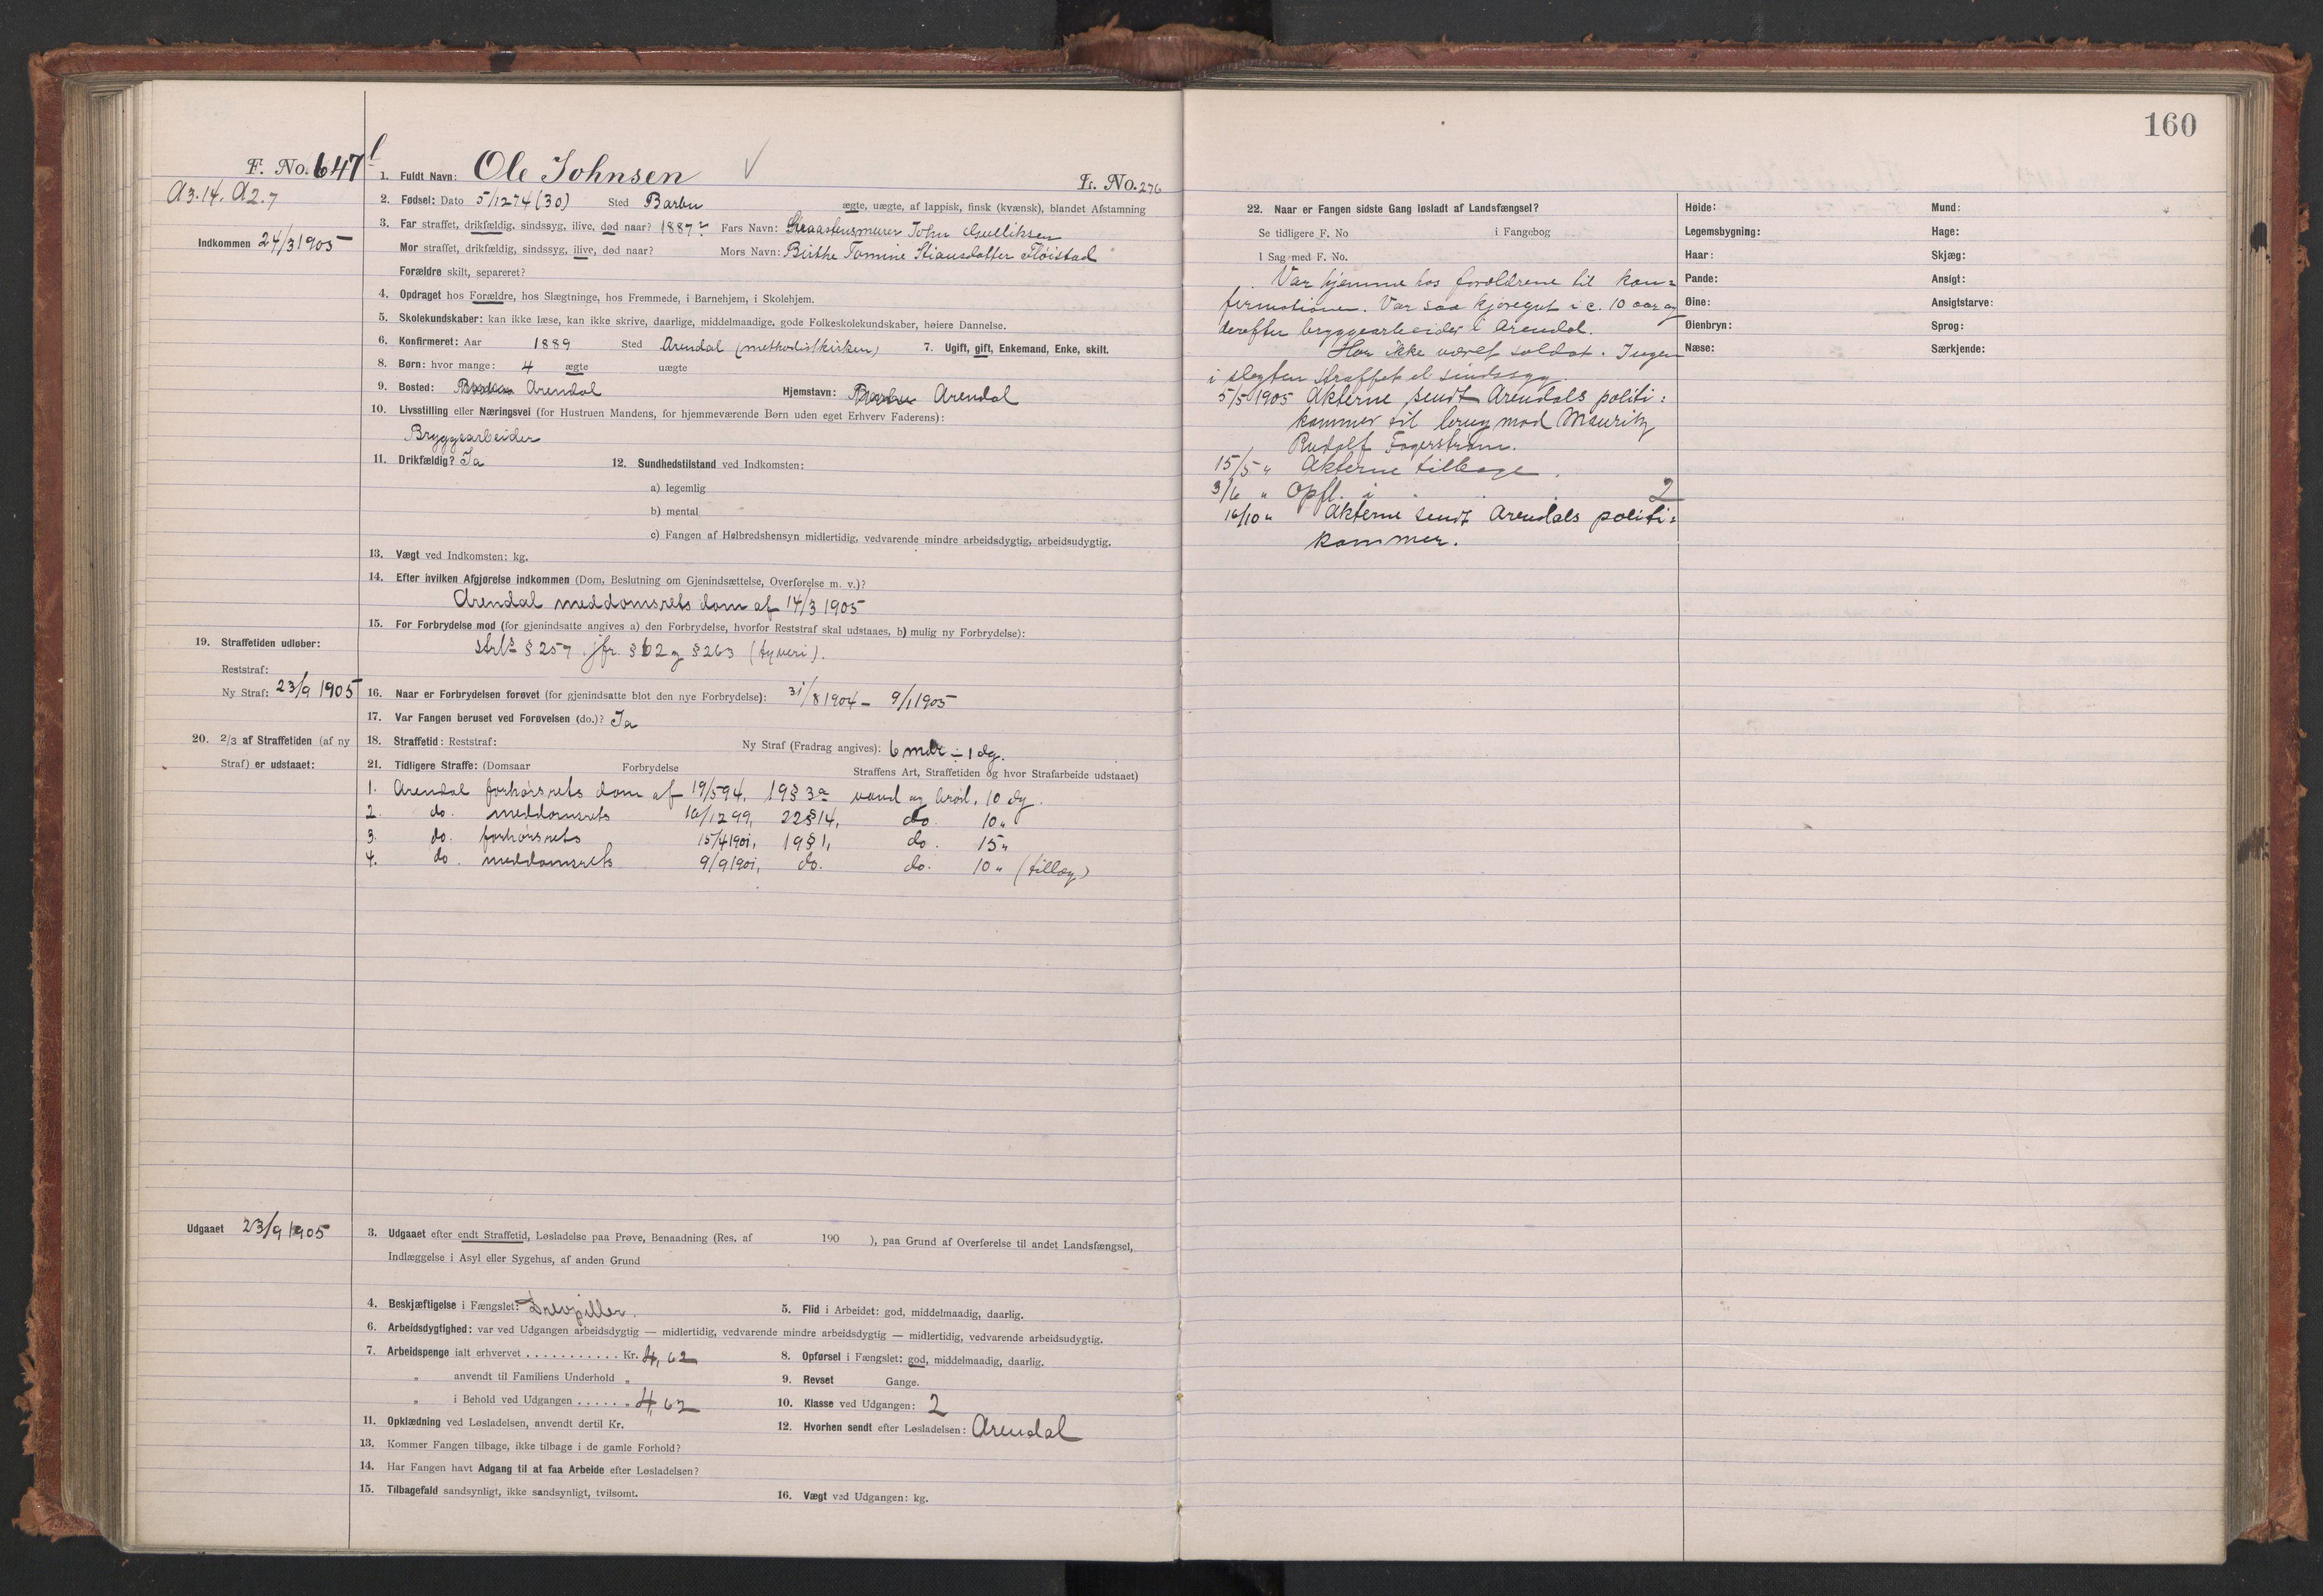 160
F. No. 647
A3.14. A2.7
Indkommen 24/3 1905
1. Fuldt Navn: Ole Johnsen
Fr. No. 276
2. Fødsel: Dato 5/12 74 (30) Sted Barbu ægte, uægte, af lappisk, finsk (kvænsk), blandet Afstamning
3. Far straffet, drikfældig, sindssyg, ilive, død naar? 1887 Fars Navn: John Gulliksen
Mor straffet, drikfældig, sindssyg, ilive, død naar? Mors Navn: Birthe Tomine Stiansdatter Fløistad
Forældre skilt, separeret?
4. Opdraget hos Forældre, hos Slægtninge, hos Fremmede, i Barnehjem, i Skolehjem.
5. Skolekundskaber: kan ikke læse, kan ikke skrive, daarlige, middelmaadige, gode Folkeskolekundskaber, høiere Dannelse.
6. Konfirmeret: Aar 1889 Sted Arendal (methodistkirken) 7. Ugift, gift, Enkemand, Enke, skilt.
8. Børn: hvor mange: 4 ægte uægte
9. Bosted: Arendal Hjemstavn: Barbu Arendal
10. Livsstilling eller Næringsvei (for Hustruen Mandens, for hjemmeværende Børn uden eget Erhverv Faderens):
Bryggearbeider
11. Drikfældig? Ja 12. Sundhedstilstand ved Indkomsten:
a) legemlig
b) mental
c) Fangen af Helbredshensyn midlertidig, vedvarende mindre arbeidsdygtig, arbeidsudygtig.
13. Vægt ved Indkomsten: kg.
14. Efter hvilken Afgjørelse indkommen (Dom, Beslutning om Gjenindsættelse, Overførelse m. v.)?
Arendal meddomsrets dom af 14/3 1905
15. For Forbrydelse mod (for gjenindsatte angives a) den Forbrydelse, hvorfor Reststraf skal udstaaes, b) mulig ny Forbrydelse):
§ 257 jfr. § 62 og § 263 (tyveri).
19. Straffetiden udløber:
Reststraf:
Ny Straf: 23/9 1905
16. Naar er Forbrydelsen forøvet (for gjenindsatte blot den nye Forbrydelse): 31/8 1904 – 9/1 1905
17. Var Fangen beruset ved Forøvelsen (do.)? Ja
20. 2/3 af Straffetiden (af ny
Straf) er udstaaet:
18. Straffetid: Reststraf: Ny Straf (Fradrag angives): 6 mdr ÷ 1 dg.
21. Tidligere Straffe: (Domsaar Forbrydelse Straffens Art, Straffetiden og hvor Strafarbeide udstaaet)
1. Arendal forhørsrets dom af 19/5 94, 19 § 3a vand og brød, 10 dg.
2. do. meddomsrets 16/12 99, 22 § 14, do. 10 "
3. do. forhørsrets 15/4 1901, 19 § 1, do. 15 "
4. do. meddomsrets 9/9 1901, do. do. 10 " (tillæg)
Udgaaet 23/9 1905
3. Udgaaet efter endt Straffetid, Løsladelse paa Prøve, Benaadning (Res. af 190 ), paa Grund af Overførelse til andet Landsfængsel,
Indlæggelse i Asyl eller Sygehus, af anden Grund
4. Beskjæftigelse i Fængslet: Drevpiller. 5. Flid i Arbeidet: god, middelmaadig, daarlig.
6. Arbeidsdygtighed: var ved Udgangen arbeidsdygtig — midlertidig, vedvarende mindre arbeidsdygtig — midlertidig, vedvarende arbeidsudygtig.
7. Arbeidspenge ialt erhvervet . . . . . . . . . . . Kr. 4,62 8. Opførsel i Fængslet: god, middelmaadig, daarlig.
" anvendt til Familiens Underhold " 9. Revset Gange.
" i Behold ved Udgangen . . . . . . " 4,62 10. Klasse ved Udgangen: 2
11. Opklædning ved Løsladelsen, anvendt dertil Kr. 12. Hvorhen sendt efter Løsladelsen: Arendal
13. Kommer Fangen tilbage, ikke tilbage i de gamle Forhold?
14. Har Fangen havt Adgang til at faa Arbeide efter Løsladelsen?
15. Tilbagefald sandsynligt, ikke sandsynligt, tvilsomt. 16. Vægt ved Udgangen: kg.
22. Naar er Fangen sidste Gang løsladt af Landsfængsel?
Se tidligere F. No i Fangebog
I Sag med F. No.
Var hjemme hos forældrene til kon=
firmationen. Var saa kjøregut i c. 10 aar og
derefter bryggearbeider i Arendal.
Har ikke været soldat. Ingen
i slegten straffet el. sindssyg.
5/5 1905 Akterne sendt Arendals politi=
kammer til brug mod Mauritz
Rudolf Fagerstrøm.
15/5 " Akterne tilbage.
3/6 " Opfl. i . . . 2
16/10 " Akterne sendt Arendals politi=
kammer.
Høide: Mund:
Legemsbygning: Hage:
Haar: Skjæg:
Pande: Ansigt:
Øine: Ansigtsfarve:
Øienbryn: Sprog:
Næse: Særkjende: